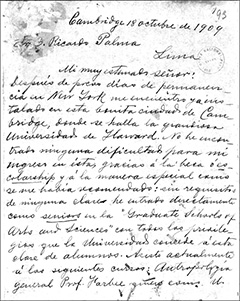 193
Cambridge 18 octubre de 1909
Sr. D. Ricardo Palma
Lima
Mi muy estimado señor:
Después de pocos días de permanen-
cia en New York me encuentro ya ins-
talado en esta bonita ciudad de Cam-
bridge, donde se halla la grandiosa
Universidad de Harvard. No he encon-
trado ninguna dificultad para mi
ingreso en esta, gracias á la beca ó es-
colarship y á la manera especial como
se me había recomendado: sin requisitos
de ninguna clase he entrado directamente
como senior en la "Graduate Schools of
Arts and Sciences" con todos los privile-
gios que la Universidad concede á esta
clase de alumnos. Asisto actualmente
á los siguientes cursos: Antropología
general Prof.